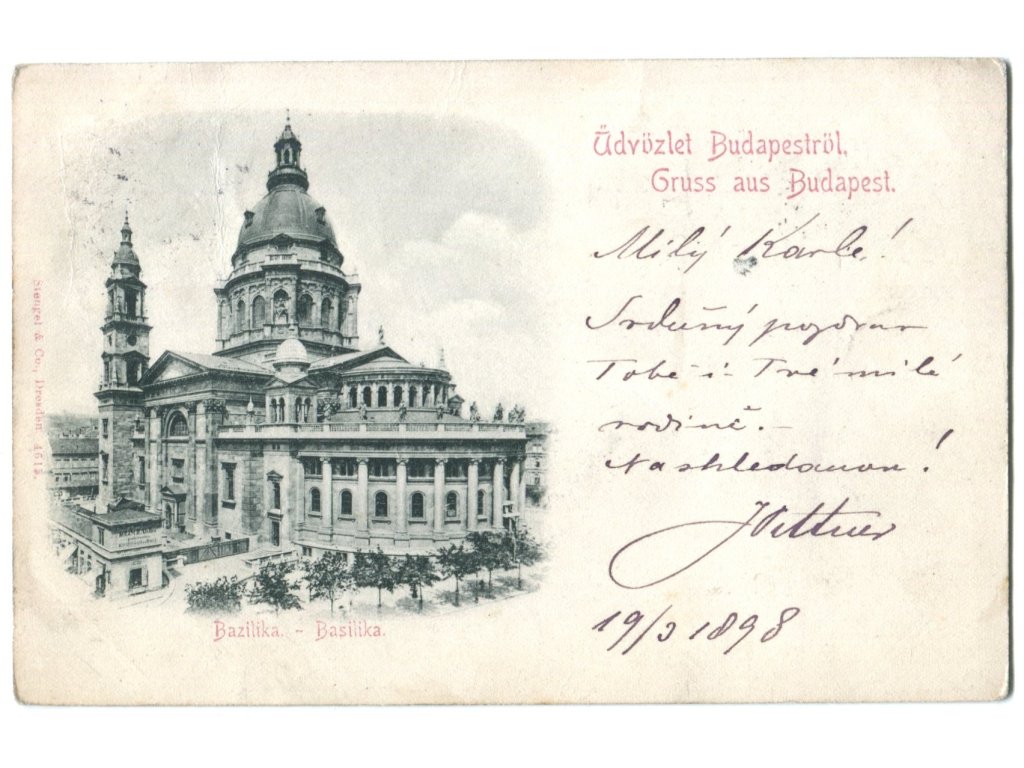 Üdvözlet Budapestről.
Gruss aus Budapest.
Milý Karle!
Srdečný pozdrav
Tobě i Tvé milé
rodině.-
Na shledanou!
Wittner
19/3 1898
Stengel & Co., Dresden 4613.
Bazilika. - Basilika.